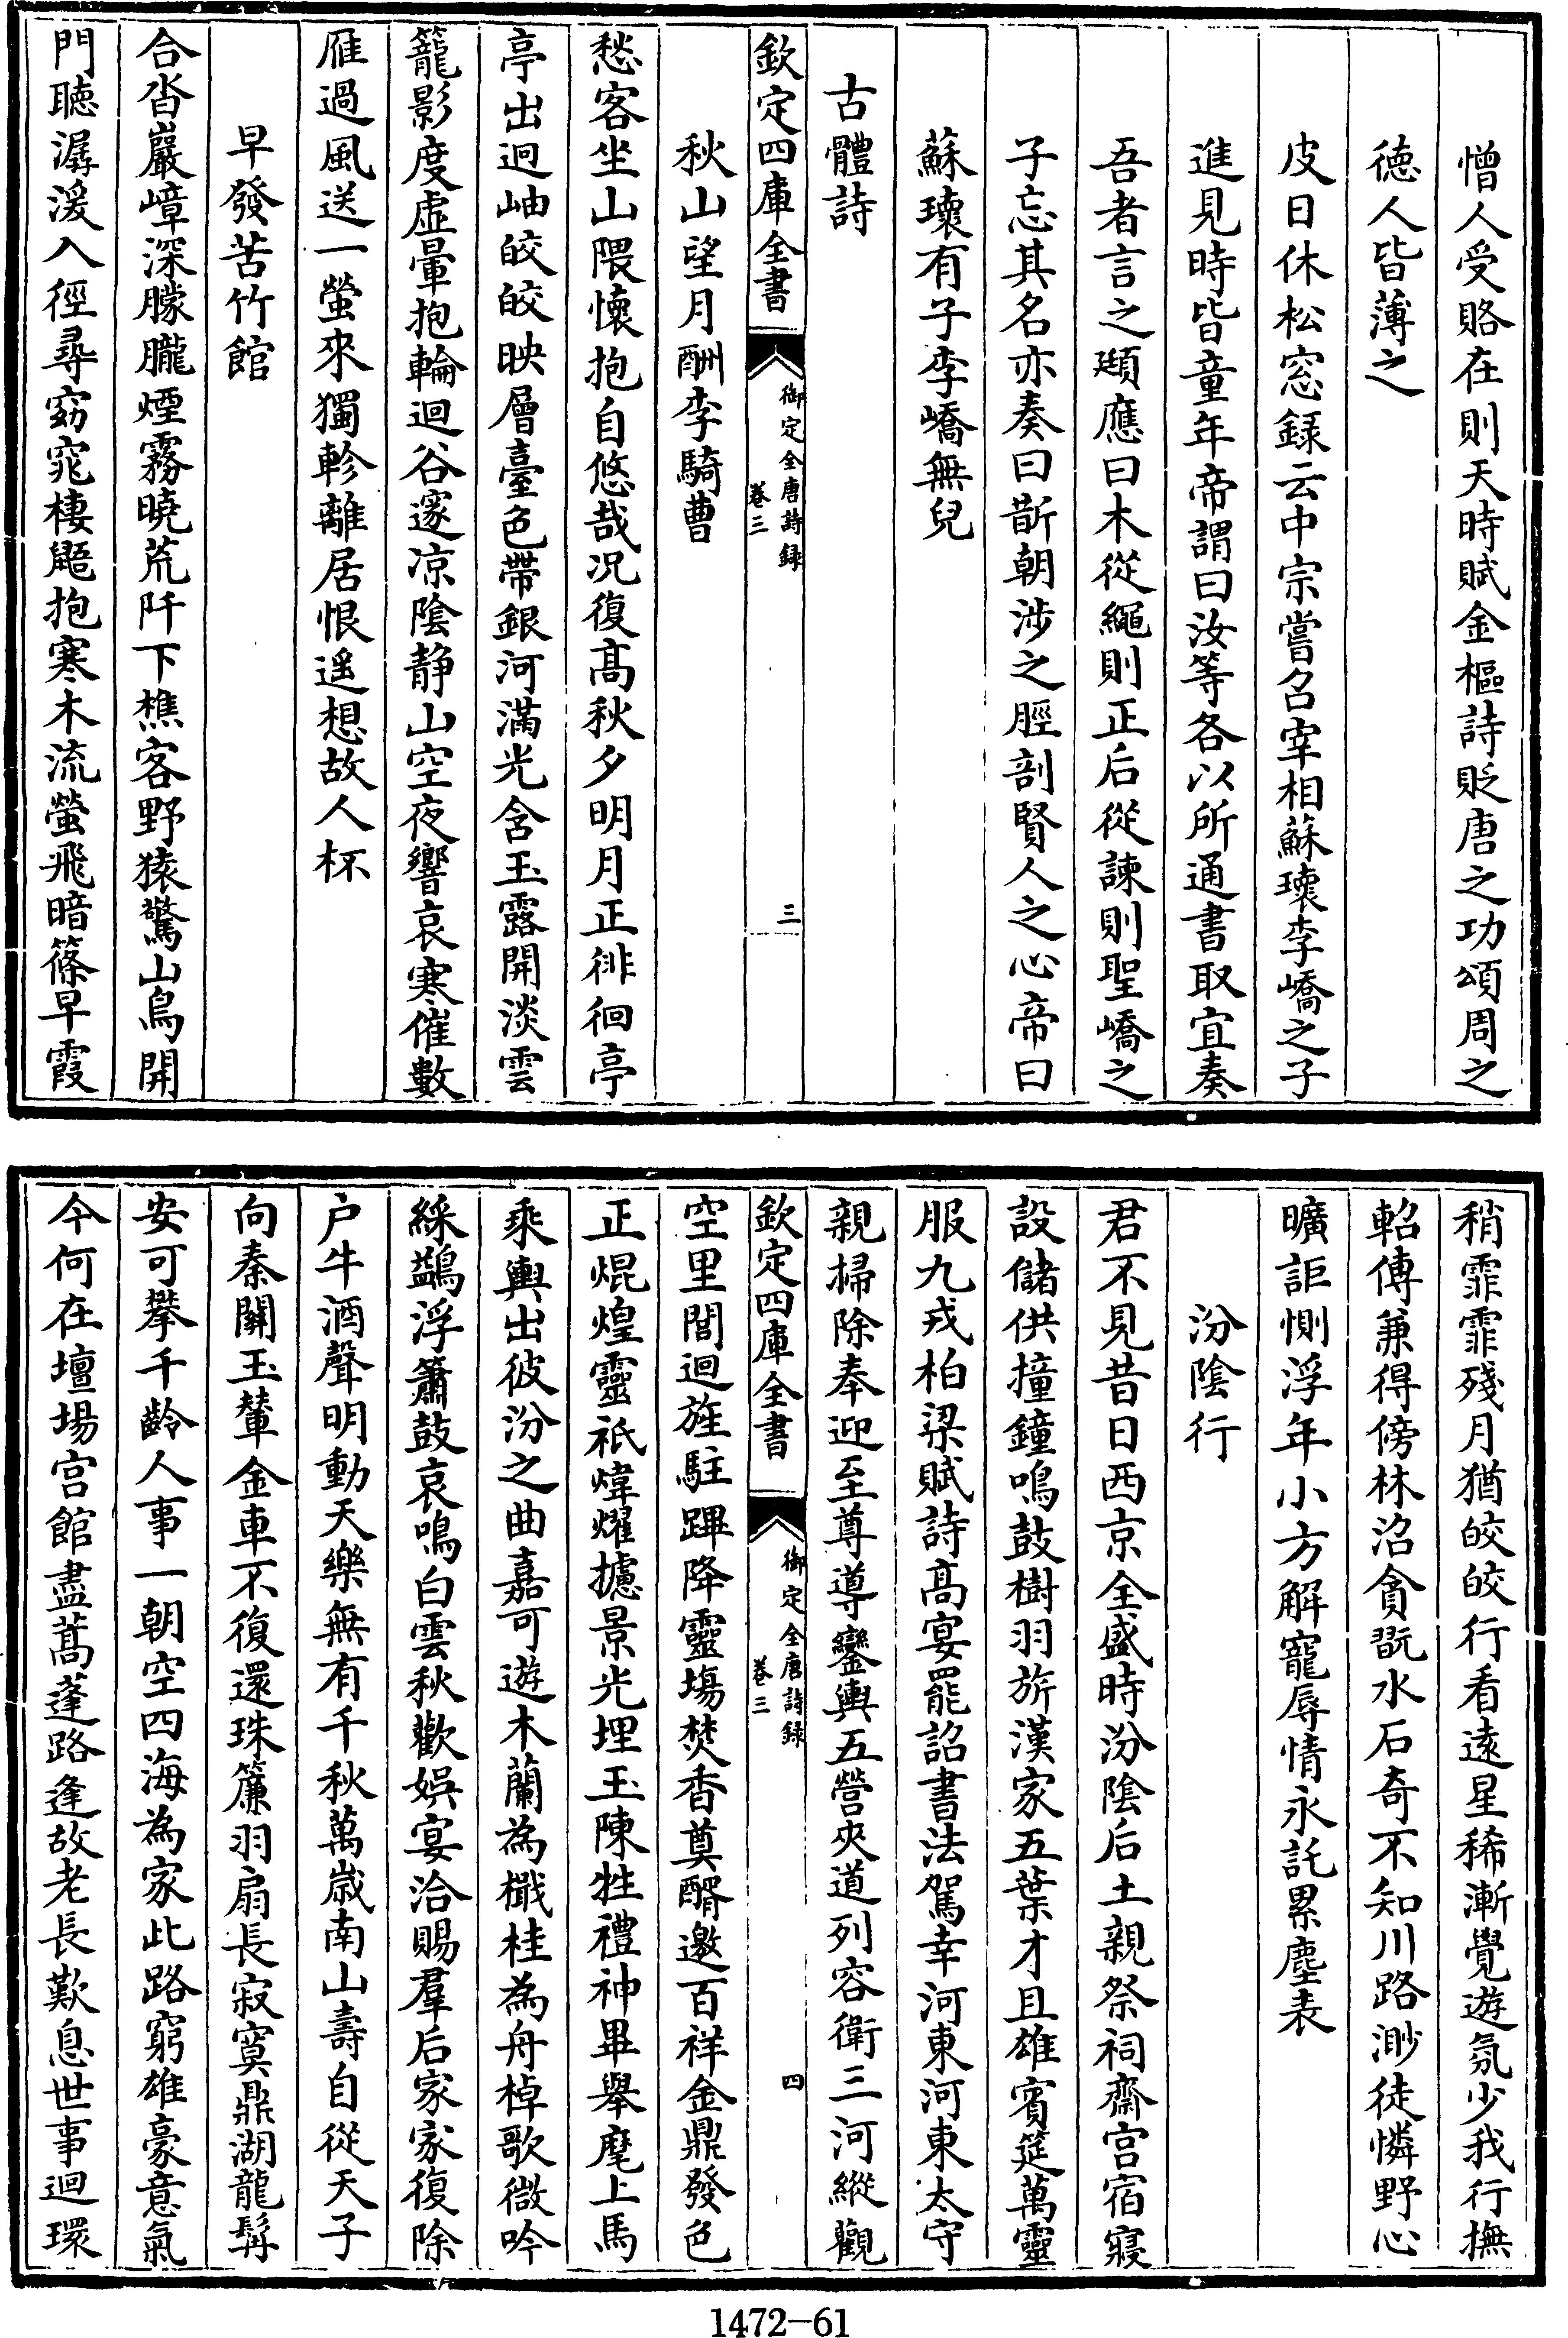 憎人受賂在則天時賦金樞詩貶唐之功頌周之
徳人皆薄之
皮日休松窓録云中宗嘗召宰相蘇瓌李嶠之子
進見時皆童年帝謂曰汝等各以所通書取宜奏
吾者言之頲應曰木從繩則正后從諫則聖嶠之
子忘其名亦奏曰斮朝涉之脛剖賢人之心帝曰
蘇瓌有子李嶠無兒
古體詩
欽定四庫全書
御定全唐詩録
卷三
三
秋山望月酬李騎曹
愁客坐山隈懷抱自悠哉况復髙秋夕明月正徘徊亭
亭出迥岫皎皎映層臺色帶銀河滿光含玉露開淡雲
籠影度虛暈抱輪迴谷邃凉陰静山空夜響哀寒催數
雁過風送一螢來獨軫離居恨遥想故人杯
早發苦竹館
合沓巖嶂深朦朧煙霧曉荒阡下樵客野猿驚山鳥開
門聴潺湲入徑尋窈窕棲鼯抱寒木流螢飛暗篠早霞
稍霏霏殘月猶皎皎行看逺星稀漸覺遊氛少我行撫
軺傳兼得傍林沼貪翫水石奇不知川路渺徒憐野心
曠詎惻浮年小方解寵辱情永託累塵表
汾隂行
君不見昔日西京全盛時汾隂后土親祭祠齋宫宿寢
設儲供撞鐘鳴鼓樹羽旂漢家五葉才且雄賓筵萬靈
服九戎柏梁賦詩髙宴罷詔書法駕幸河東河東太守
親掃除奉迎至尊導鑾輿五營夾道列容衛三河縱觀
欽定四庫全書
御定全唐詩録
卷三
四
空里閭迴旌駐蹕降靈塲焚香奠醑邀百祥金鼎發色
正焜煌靈祇煒燿攄景光埋玉陳牲禮神畢舉麾上馬
乘輿出彼汾之曲嘉可遊木蘭為檝桂為舟棹歌微吟
綵鷁浮簫鼓哀鳴白雲秋歡娯宴洽賜羣后家家復除
户牛酒聲明動天樂無有千秋萬歳南山壽自從天子
向秦關玉輦金車不復還珠簾羽扇長寂寞鼎湖龍髯
安可攀千齡人事一朝空四海為家此路窮雄豪意氣
今何在壇塲宫館盡蒿蓬路逢故老長歎息世事迴環
1472-61